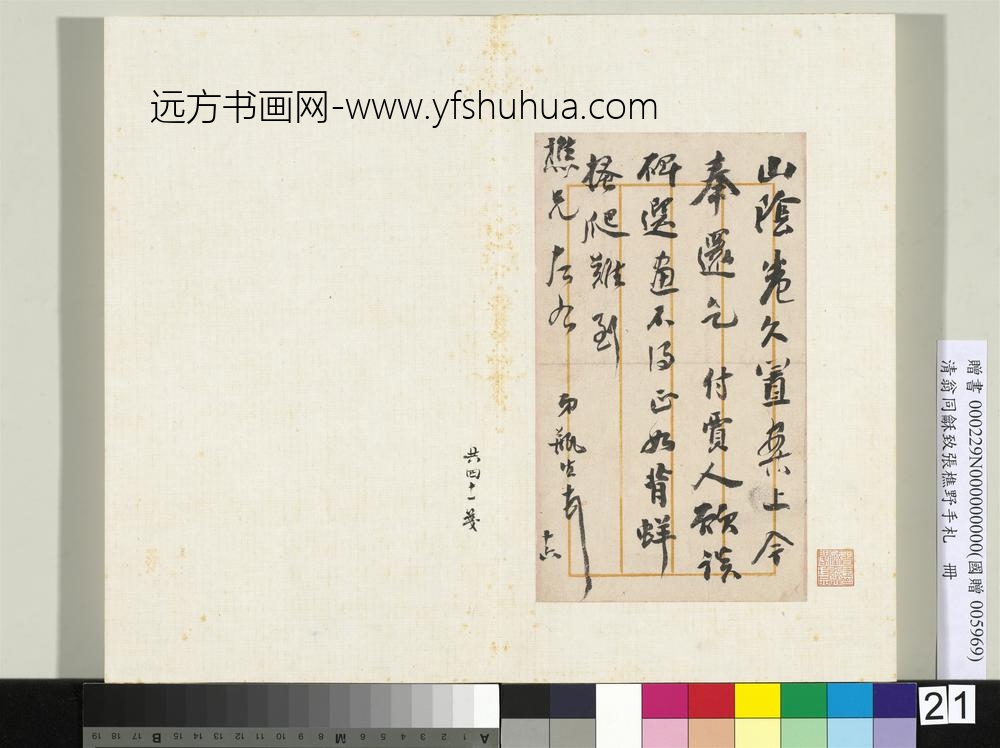 远方书画网-www.yfshuhua.com
山陰卷久置案上今
奉還乞付賈人欲談
碑選畫不得正如背蛘
搔爬難到
樵兄左右
弟瓶生頓
十六
共四十一箋
贈書 000229N000000000(國贈 005969)
清翁同龢致張樵野手札 冊
21
19 18 17 16 15 B 13 12 11 10 9 8 M 6 5 4 3 2 1 A